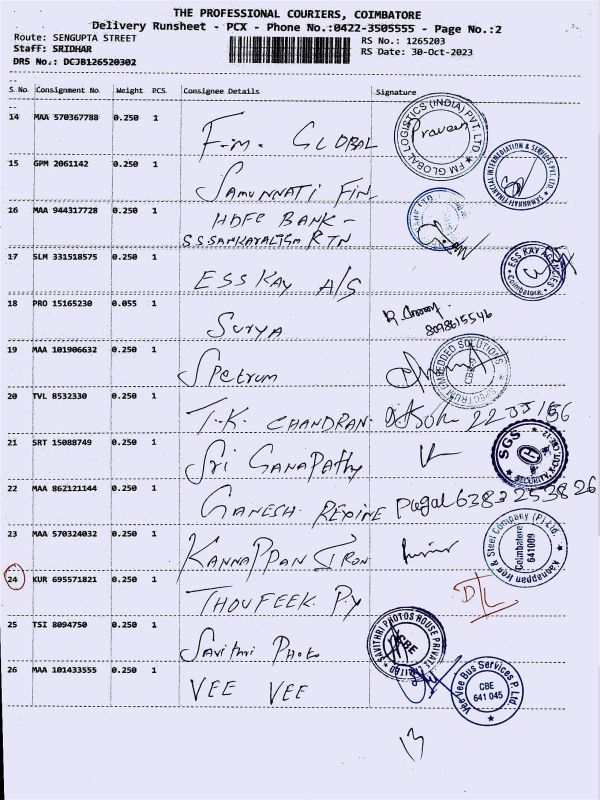 THE PROFESSIONAL COURIERS, COIMBATORE
Delivery Runsheet - PCX - Phone No.:0422-3505555 - Page No.:2
Route: SENGUPTA STREET RS No.: 1265203
Staff: SRIDHAR RS Date: 30-Oct-2023
DRS No.: DCJB126520302
S. No. Consignment No Weight PCS Consignee Details Signature
14 MAA 570367788 0.250 1 F.M. GLOBAL Praveen FM GLOBAL LOGISTICS (INDIA) PVT. LTD.
15 GPM 2061142 0.250 1 SAMUNNATI FIN. SAMUNNATI FINANCIAL INTERMEDIATION & SERVICES PVT LTD
16 MAA 944317728 0.250 1 HDFC BANK -
RTN
17 SLM 331518575 0.250 1 ESS KAY A/S ESS KAY AGENCIES Coimbatore 3
18 PRO 15165230 0.055 1 SURYA 8098615546
19 MAA 101906632 0.250 1 Spetrum SPECTRUM EMBEDDED SOLUTIONS CBE-9
20 TVL 8532330 0.250 1 T.K. CHANDRAN.
21 SRT 15088749 0.250 1 Sri GANAPAthy SGS SECURITY
22 MAA 862121144 0.250 1 GANESH REXINE 6383253826
23 MAA 570324032 0.250 1 KANNAPPAN IRON Kannappan Iron & Steel Company (P) Ltd. Coimbatore 641009
24 KUR 695571821 0.250 1 THOUFEEK. P.y D/L
25 TSI 8094750 0.250 1 Savithri Photo SAVITHRI PHOTOS HOUSE PRIVATE LIMITED CBE
26 MAA 101433555 0.250 1 VEE VEE Vee Vee Bus Services P. Ltd CBE 641 045
13